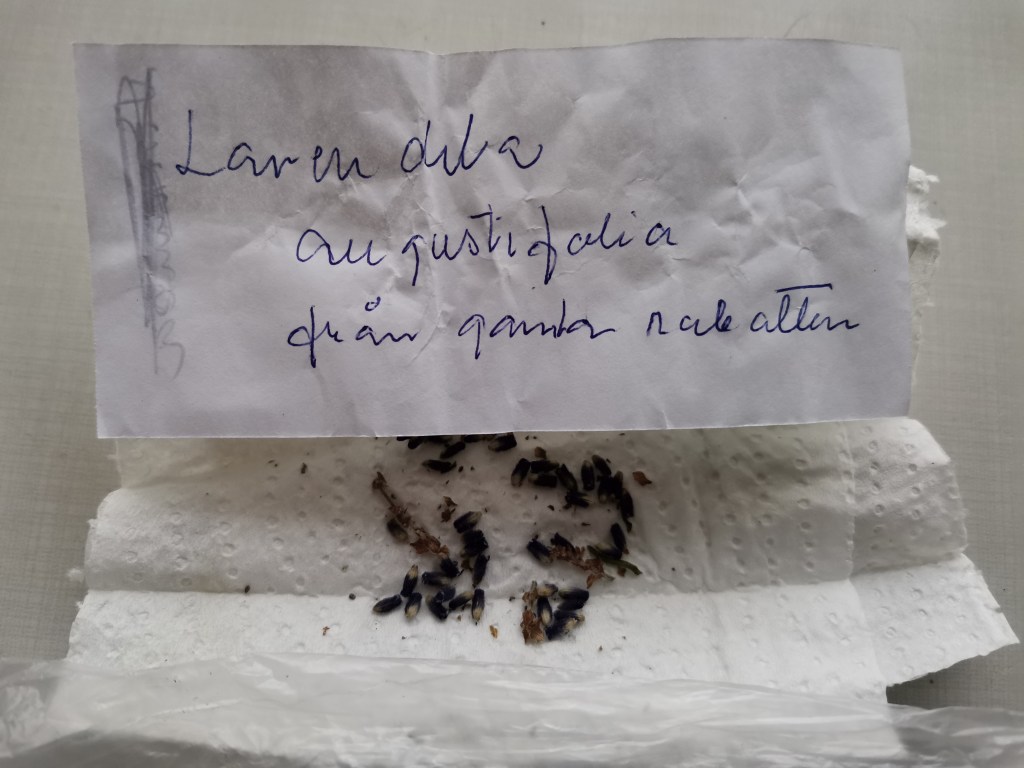 Lavendula
augustifolia
från gamla rabatten